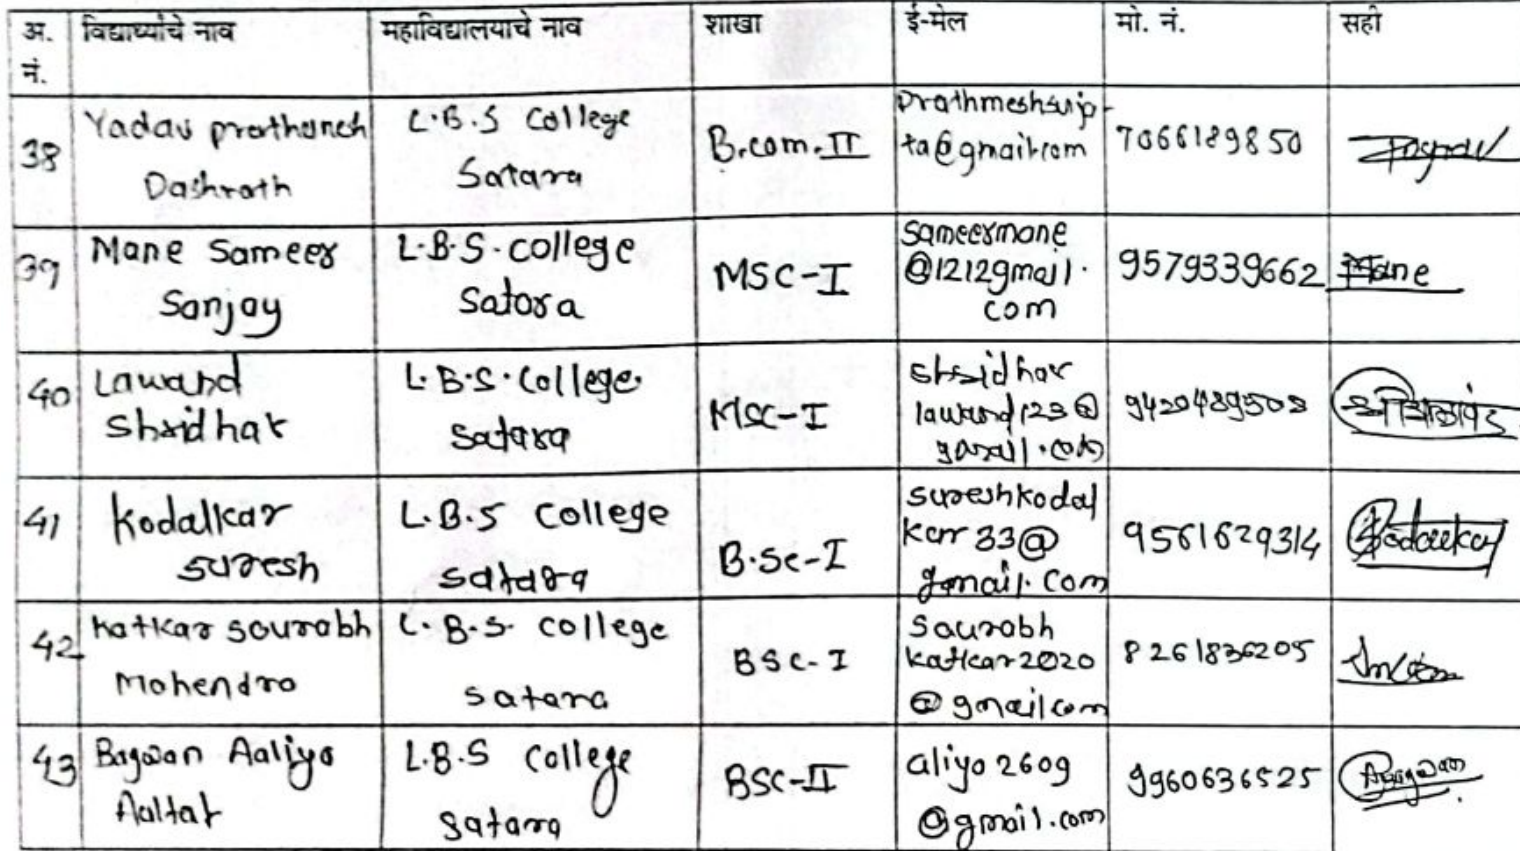 अ. नं. विद्यार्थ्याचे नाव महाविद्यालयाचे नाव शाखा ई-मेल मो. नं. सही
38 Yadav Dashrath
L.B.S College Satara
B.com.II
7066189850
39 Mane Sameer Sanjay
L.B.S. College Satara
MSC-I
sameermane
@1212gmail.
com
9579339662 Mane
40 Lawand Shridhar
L.B.S. College Satara
MSC-I
shridhar
lawand123@
gmail.com
41 Kodalkar Suresh
L.B.S College Satara
B.Sc-I
sureshkodal
kar 33@
gmail.com
9561629314
42 Katkar Sourabh Mohendra
L.B.S. College Satara
BSC-I
Saurabh
katkar2020
@gmailcom
8261836205
43 Bagwan Aaliya
L.B.S College Satara
BSC-II
aliya2609
@gmail.com
9960636525